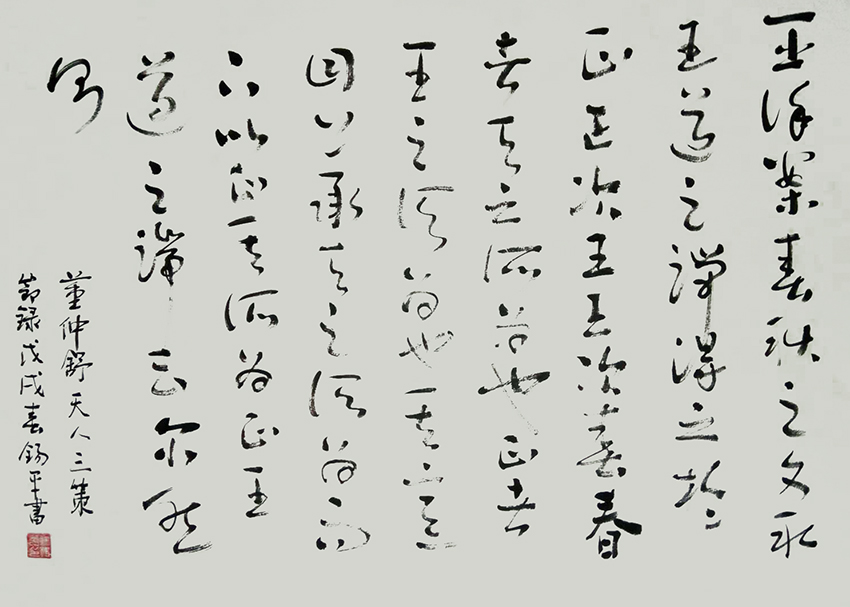 臣謹案春秋之文求
王道之端得之於
正正次王王次春春
者天之所為也正者
王之所為也其意
曰上承天之所為而
下以正其所為正王
道之端云尔然
則
董仲舒天人三策
節録戊戌春錫平書